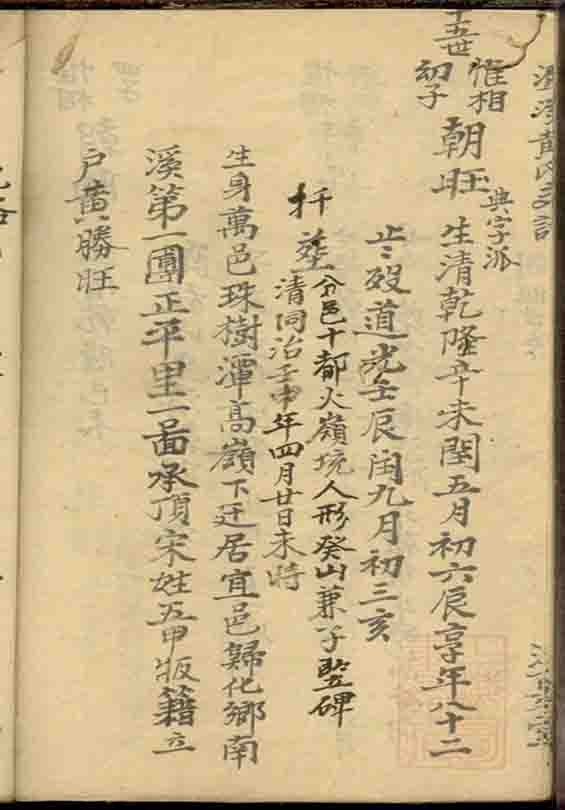 十五世
惟相
幼子
朝旺
典字派
生清乾隆辛未閏五月初六辰享年八十二
歿道光壬辰闰九月初三亥
扦塟
分邑十都火嶺坑人形癸山兼子竪碑
清同治壬申年四月廿日未時
生身萬邑珠樹潭高嶺下迁居宜邑歸化鄉南
溪第一圖正平里一啚承頂宋姓五甲版籍立
户黄勝旺